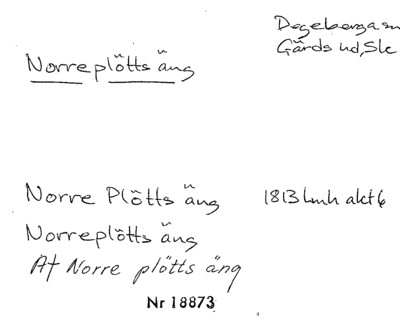 Degeberga sn
Gärds hd, Skå
Norreplötts äng
Norre Plötts äng 1813 Lmh akt 6
Norreplötts äng
At Norre plötts äng
Nr 18873